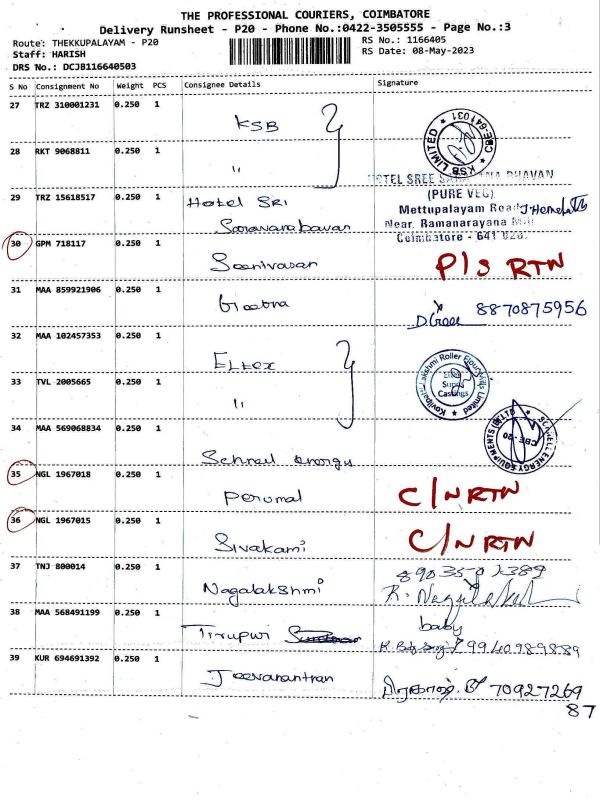 THE PROFESSIONAL COURIERS, COIMBATORE
Delivery Runsheet - P20 - Phone No.:0422-3505555 - Page No.:3
Route: THEKKUPALAYAM - P20
Staff: HARISH
DRS No.: DCJB116640503
RS No.: 1166405
RS Date: 08-May-2023
S No Consignment No Weight PCS Consignee Details Signature
27 TRZ 310001231 0.250 1 KSB
KSB LIMITED CBE-641031
28 RKT 9068811 0.250 1 "
29 TRZ 15618517 0.250 1 Hotel SRI
Saravanabavan
HOTEL SREE BHAVAN
(PURE VEG)
Mettupalayam Road
Near. Ramanarayana Mill
Coimbatore - 641 020.
30 GPM 718117 0.250 1 Seenivasan P/S RTN
31 MAA 859921906 0.250 1 8870875956
32 MAA 102457353 0.250 1 Eltex
33 TVL 2005665 0.250 1 "
Lakshmi Roller Flour Mills Limited
Eltex
Super
Castings
34 MAA 569068834 0.250 1 Schnell energy
SCHNELL ENERGY EQUIPMENTS (P) LTD CBE-20
35 NGL 1967018 0.250 1 Perumal C/N RTN
36 NGL 1967015 0.250 1 Sivakami C/N RTN
37 TNJ 800014 0.250 1 Nagalakshmi
38 MAA 568491199 0.250 1 Tirupur
baby
9940989889
39 KUR 694691392 0.250 1 Jeevananthan
70927269
87